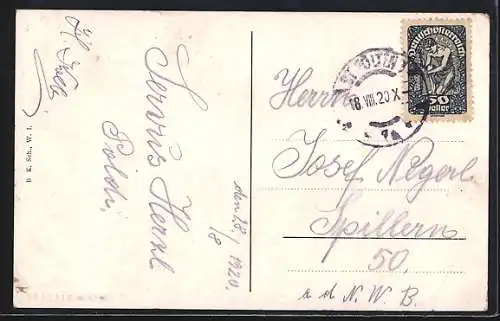 Servus Herzl
Poldi.
den 18/8 1920.
B. K. Sch., W. I.
Deutschösterreich
50
Heller
18 VIII 20 X
Herrn
Josef Negerl
Spillern
50.
a d N. W B.